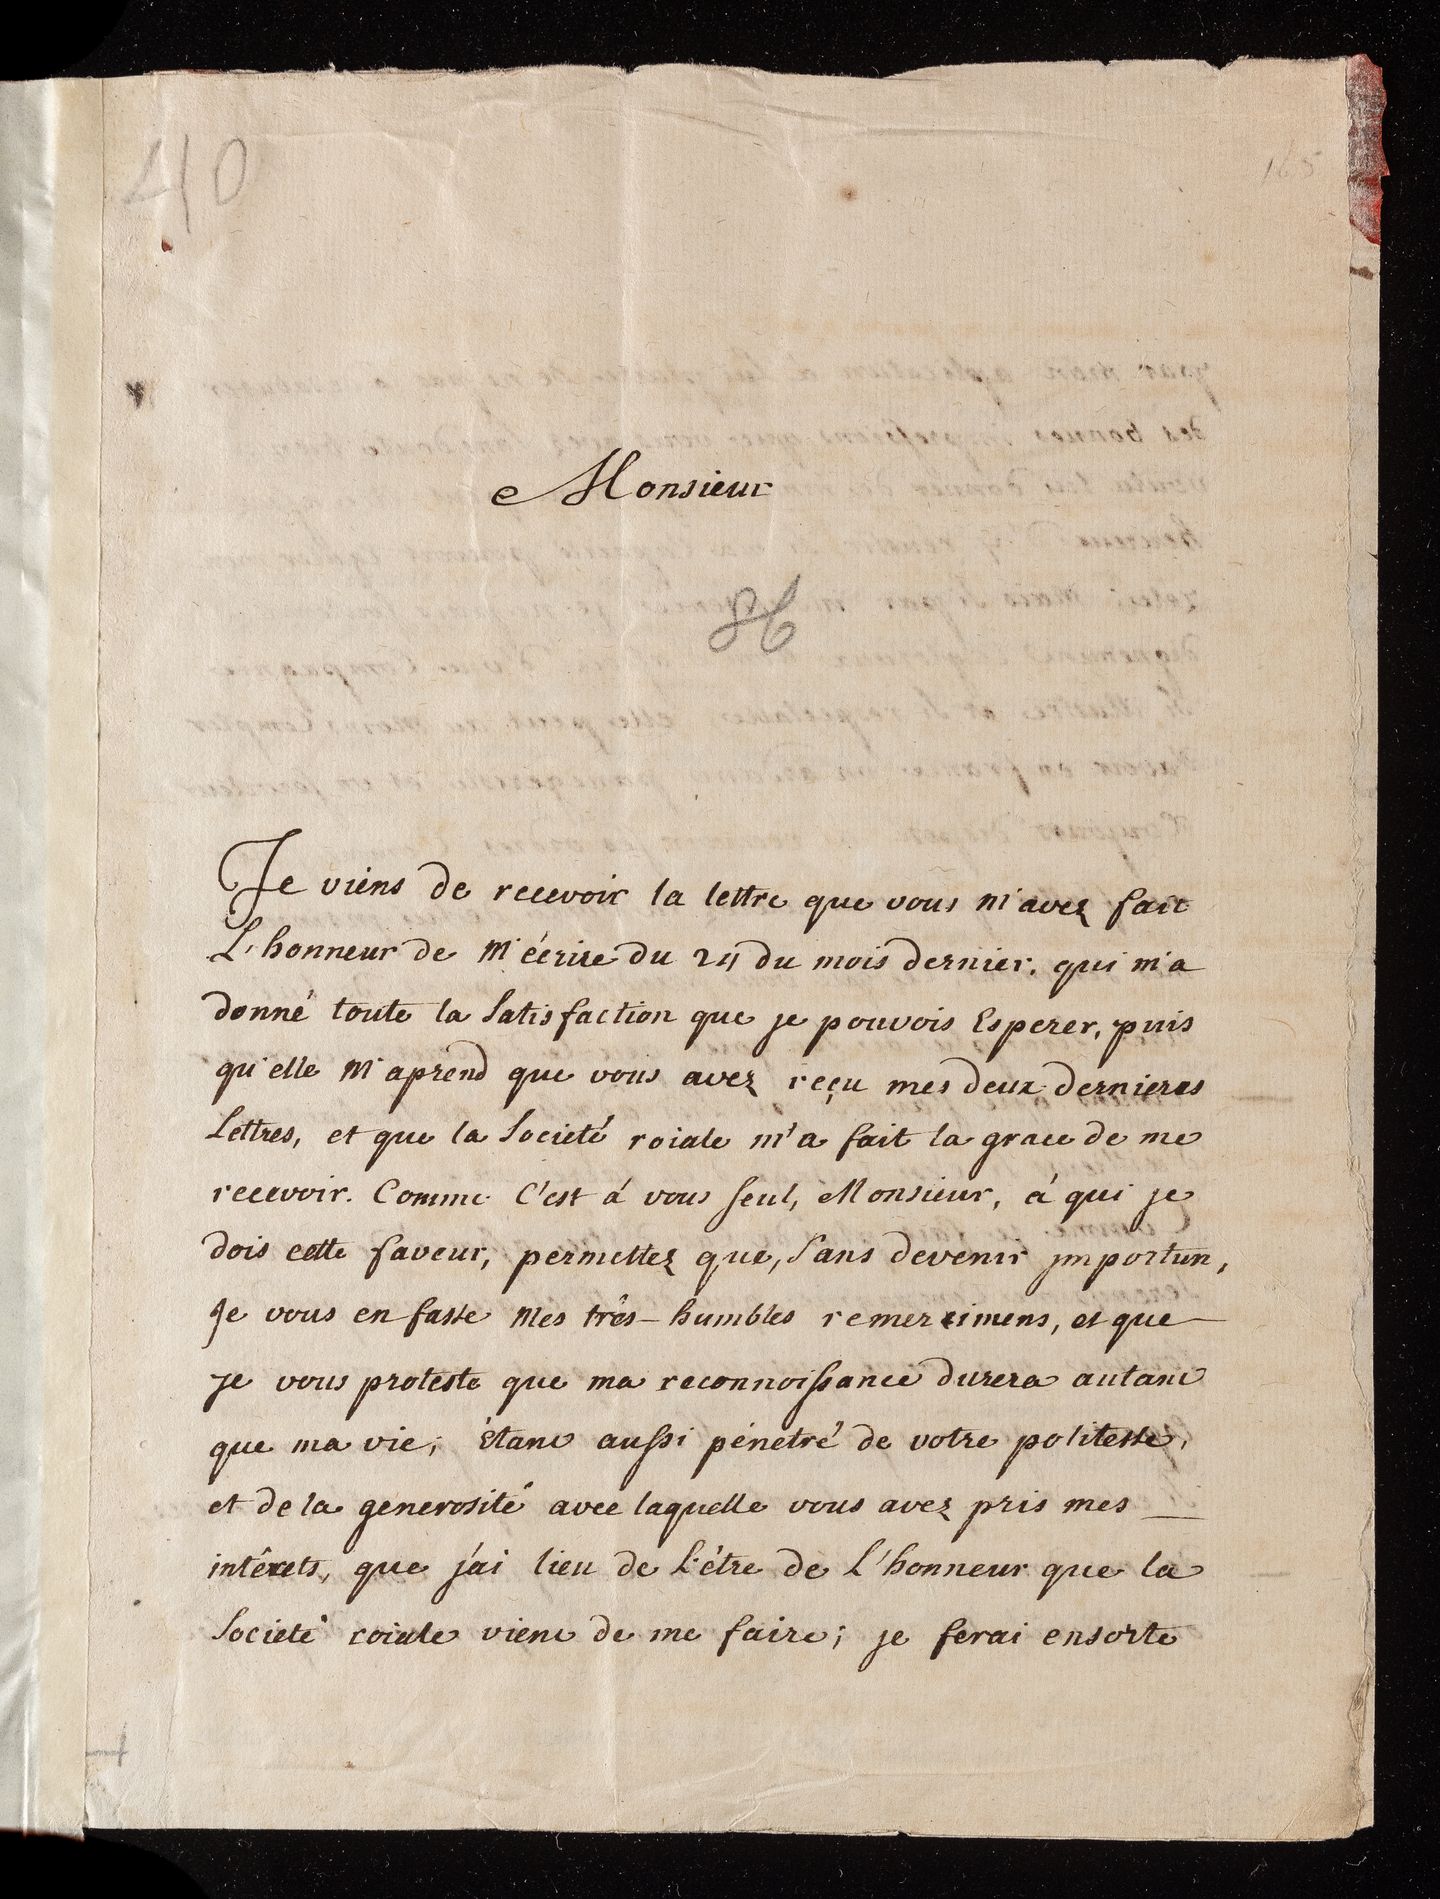 40
165
Monsieur
86
Je viens de recevoir la lettre que vous m'avez fait
L'honneur de M'écrire du 24 du mois dernier, qui m'a
donné toute la Satisfaction que je pouvois Esperer, puis
qu'elle M'aprend que vous avez reçu mes deux dernieres
Lettres, et que la Societé roiale m'a fait la grace de me
recevoir. Comme C'est á vous seul, Monsieur, á qui je
dois cette faveur, permettez que, Sans devenir jmportun,
Je vous en fasse Mes très-humbles remercimens, et que
je vous proteste que ma reconnoissance durera autant
que ma vie; Étant aussi pénétré de votre politesse,
et de la generosité avec laquelle vous avez pris mes
intérêts, que j'ai lieu de L'être de L'honneur que la
Societé roiale vient de me faire; je ferai ensorte